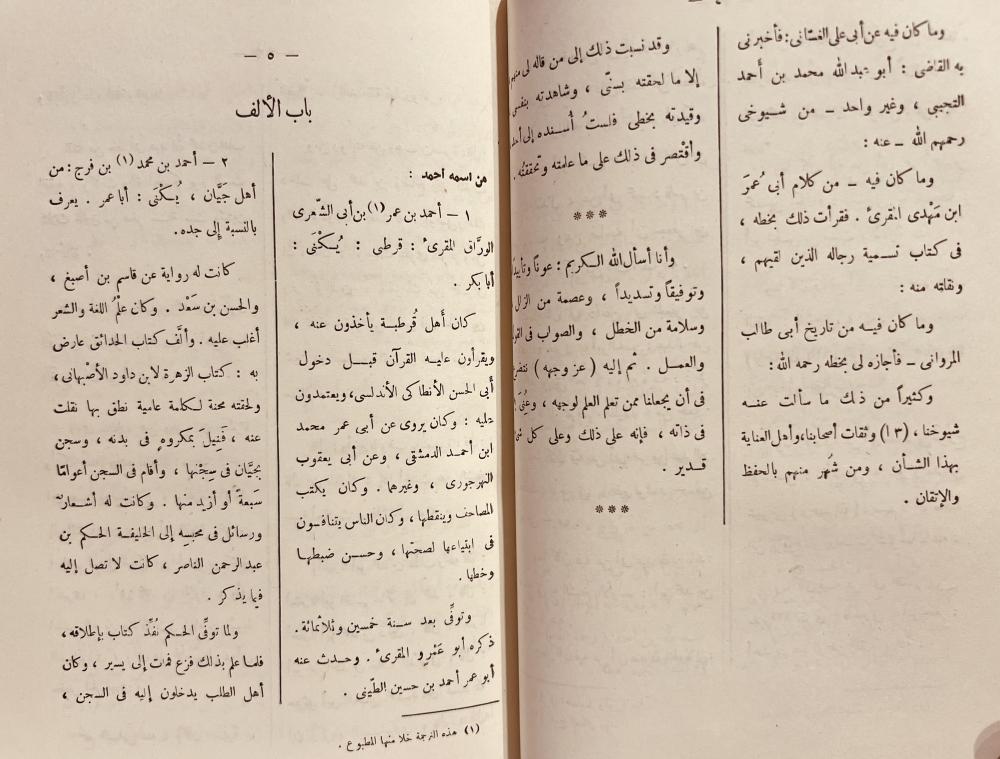 وما كان فيه عن أبى على الغسّانى: فأخبرنى
به القاضى : أبو عبد الله محمد بن أحمد
التجيبى ، وغير واحد ــ من شيوخى
رحمهم الله ــ عنه :
وما كان فيه ــ من كلام أبى عُمرَ
ابن مَهْدى المقرئ . فقرأت ذلك بخطه ،
فى كتاب تسمية رجاله الذين لقيهم ،
ونقلته منه :
وما كان فيه من تاريخ أبى طالب
المروانى ــ فأجازه لى بخطه رحمه الله :
وكثيراً من ذلك ما سألت عنه
شيوخنا ، (١٣) وثقات أصحابنا، وأهل العناية
بهذا الشأن ، ومن شُهر منهم بالحفظ
والإتقان .
وقد نسبت ذلك إلى من قاله لى منهم
إلا ما لحقته بسنّى ، وشاهدته بنفسى
وقيدته بخطى فلستُ أسنده إلى
وأقتصر فى ذلك على ما علمته وتحققتُه .
***
وأنا أسأل الله الكريم : عوناً وتأييداً
وتوفيقاً وتسديداً ، وعصمة من الزلل
وسلامة من الخطل ، والصواب فى
والعمل . ثم إليه ( عز وجهه )
فى أن يجعلنا ممن تعلم العلم لوجهه ،
فى ذاته ، فإنه على ذلك وعلى كل
قدير .
***
— ٥ —
باب الألف
من اسمه احمد :
١ – أحمد بن عمر (١) بن أبى الشّعرى
الورَّاق المقرئ : قرطبى : يُكْنَى :
أبا بكر .
كان أهل قُرطبة يأخذون عنه ،
ويقرأون عليه القرآن قبل دخول
أبى الحسن الأنطاكى الأندلسى، ويعتمدون
عليه : وكان يروى عن أبى عمر محمد
ابن أحمد الدمشقى ، وعن أبى يعقوب
النهرجورى ، وغيرهما . وكان يكتب
المصاحف وينقطها ، وكان الناس يتنافسون
فى ابتياعها لصحتها ، وحسن ضبطها
وخطها .
وتوفِّى بعد سنة خمسين وثلاثمائة .
ذكره أبو عَمْرٍو المقرئ . وحدث عنه
أبو عمر أحمد بن حسين الطّينى .
(١) هذه الترجمة خلا منها المطبوع .
٢ – أحمد بن محمد (١) بن فرج: من
أهل جَيَّان ، يُكْنَى : أبا عمر . يعرف
بالنسبة إلى جده .
كانت له رواية عن قاسم بن أصبغ ،
والحسن بن سَعْد . وكان علْمُ اللغة والشعر
أغلب عليه . وألَّف كتاب الحدائق عارض
به : كتاب الزهرة لابن داود الأصْبهانى ،
ولحقته محنة لكلمة عامية نطق بها نقلت
عنه ، فَنِيلَ بمكروهٍ فى بدنه ، وسجن
بجيَّان فى سِجْنها ، وأقام فى السجن أعوامًا
سَبعةً أو أزيد منها . وكانت له أشعار
ورسائل فى محبسِه إلى الخليفة الحكم بن
عبد الرحمن الناصر ، كانت لا تصل إليه
فيما يذكر .
ولما توفِّى الحكم نُفِّذ كتاب بإطلاقه ،
فلما علم بذلك فزع فمات إلى يسير ، وكان
أهل الطلب يدخلون إليه فى السجن ،